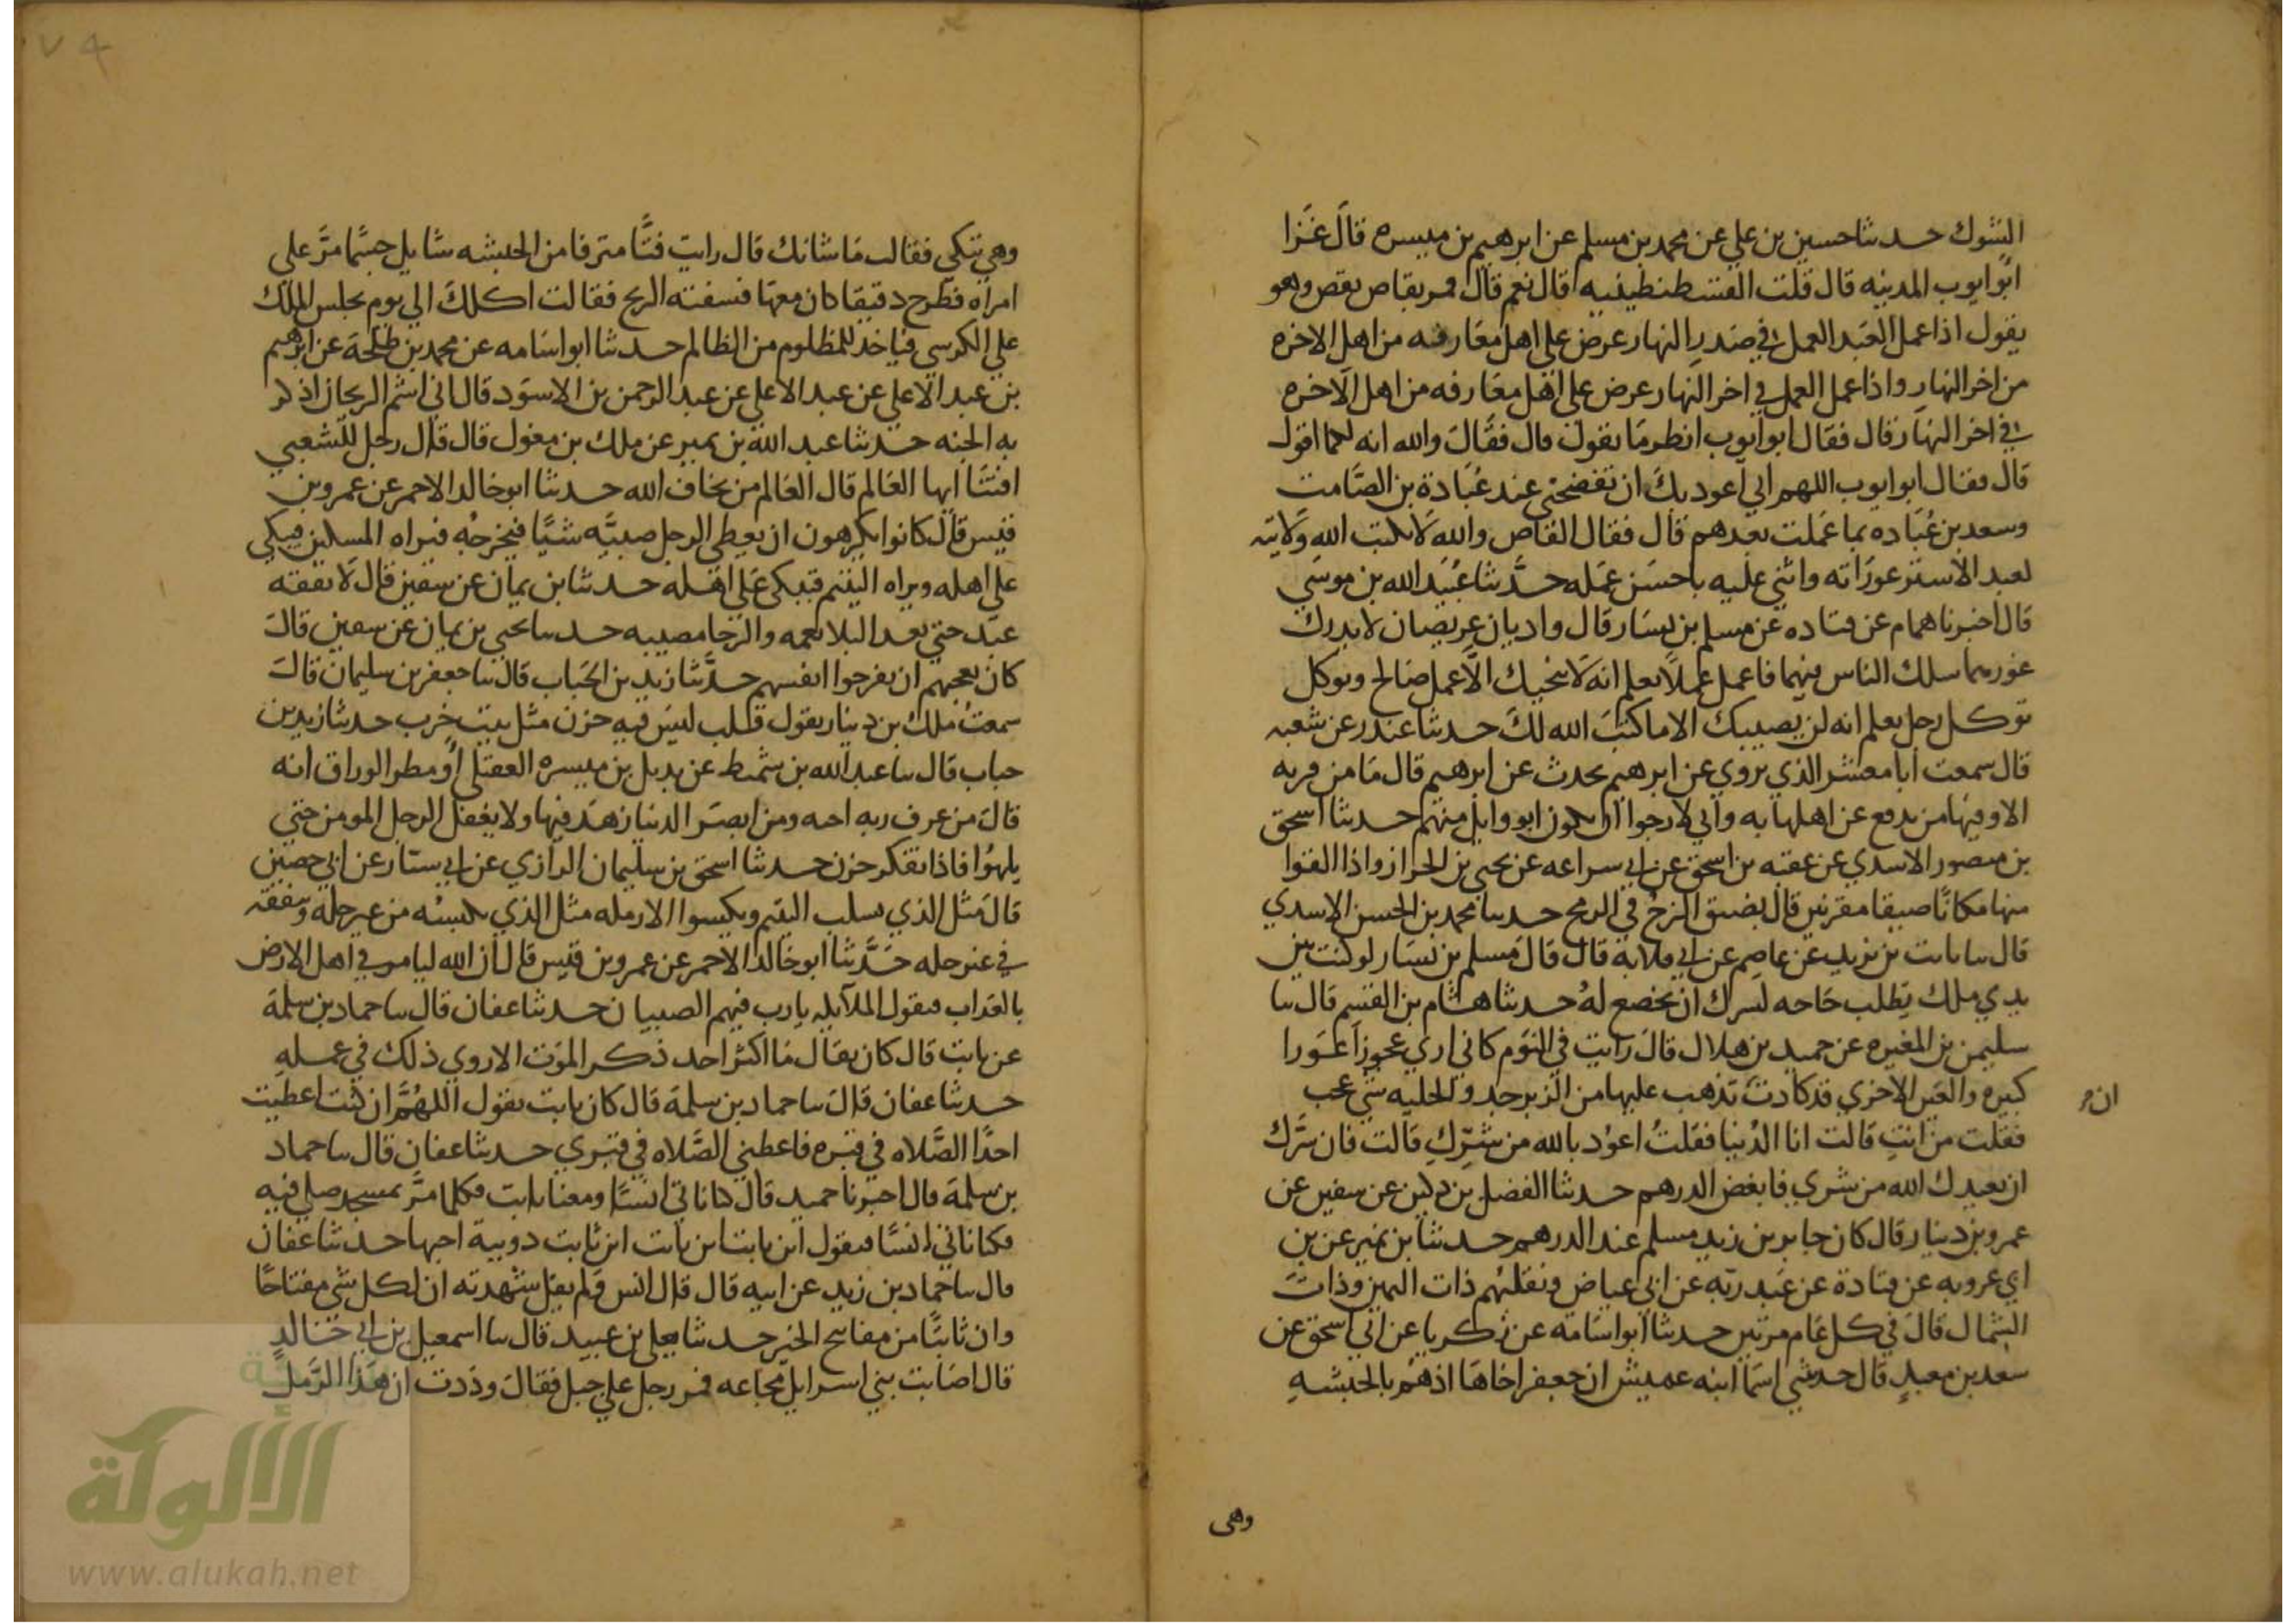 الشوك حدثنا حسين بن علي عن محمد بن مسلم عن ابرهيم بن ميسره قال غزا
ابو ايوب المدينه قال قلت القسطنطينيه قال نعم قال فمر بقاص يقص وهو
يقول اذا عمل العبد العمل في صدر النهار عرض على اهل معارفه من اهل الاخره
من اخر النهار واذا عمل العمل في اخر النهار عرض على اهل معارفه من اهل الاخره
في اخر النهار قال فقال ابو ايوب انظر ما يقول قال فقال والله انه لكما اقول
قال فقال ابو ايوب اللهم اني اعوذ بك ان تفضحني عند عبادة بن الصامت
وسعد بن عباده بما عملت بعدهم قال فقال القاص والله لا يكتب الله ولايته
لعبد الا ستر عوراته واثنى عليه باحسن عمله حدثنا عبيد الله بن موسى
قال اخبرنا همام عن قتاده عن مسلم بن يسار قال واديان عريضان لا يدرك
غورهما سلك الناس فيهما فاعمل عملا يعلم انه لا ينجيك الا عمل صالح وتوكل
توكل رجل يعلم انه لن يصيبك الا ما كتب الله لك حدثنا غندر عن شعبه
قال سمعت ابا معشر الذي يروي عن ابرهيم يحدث عن ابرهيم قال ما من قريه
الا وفيها من يدفع عن اهلها به واني لارجوا ان يكون ابو وايل منهم حدثنا اسحق
بن منصور الاسدي عن عقبه بن اسحق عن ابي سراعه عن يحيى بن الجزار واذا القوا
منها مكانا ضيقا مقرنين قال يضيق الزج في الرمح حدثنا محمد بن الحسن الاسدي
قال ثنا ثابت بن يزيد عن عاصم عن ابي قلابة قال قال مسلم بن يسار لو كنت بين
يدي ملك يطلب حاجه لسرك ان تخضع له حدثنا هاشم بن القسم قال ثنا
سليمن بن المغيره عن حميد بن هلال قال رايت في النوم كاني ارى عجوزا عورا
كبيره والعين الاخرى قد كادت تذهب عليها من الزبرجد والحليه شي عجب
فقلت من انت قالت انا الدنيا فقلت اعوذ بالله من شرك قالت فان سرك
ان م
ان يعيذك الله من شري فابغض الدرهم حدثنا الفضل بن دكين عن سفين عن
عمرو بن دينار قال كان جابر بن زيد مسلم عند الدرهم حدثنا بن نمير عن بن
ابي عروبه عن قتادة عن عبد ربه عن ابي عياض ونقلبهم ذات اليمين وذات
الشمال قال في كل عام مرتين حدثنا ابو اسامة عن زكريا عن ابي اسحق عن
سعد بن معبد قال حدثتني اسما ابنه عميش ان جعفر اخاها اذ هم بالحبشه
وهى
وهي تبكي فقالت ما شانك قال رايت فتا مترفا من الحبشه شابا جسما مر على
امراه فطرح دقيقا كان معها فسفته الريح فقالت اكلك الى يوم يجلس الملك
على الكرسي فياخذ للمظلوم من الظالم حدثنا ابو اسامه عن محمد بن طلحة عن ابرهيم
بن عبد الاعلى عن عبد الاعلى عن عبد الرحمن بن الاسود قال اني اشم الريحان اذكر
به الجنه حدثنا عبد الله بن نمير عن ملك بن مغول قال قال رجل للشعبي
افتنا ايها العالم قال العالم من يخاف الله حدثنا ابو خالد الاحمر عن عمرو بن
قيس قال كانوا يكرهون ان يعطي الرجل صبيه شيا فيخرجه فيراه المسكين فيبكي
على اهله ويراه اليتيم فيبكي على اهله حدثنا بن يمان عن سفين قال لا يفقه
عبد حتى يعد البلا نعمه والرخا مصيبه حدثنا يحيى بن يمان عن سفين قال
كان يعجبهم ان يفرحوا انفسهم حدثنا زيد بن الحباب قال ثنا جعفر بن سليمان قال
سمعت ملك بن دينار يقول قلب ليس فيه حزن مثل بيت خرب حدثنا زيد بن
حباب قال ثنا عبد الله بن شميط عن بديل بن ميسره العقيلي او مطر الوراق انه
قال من عرف ربه احبه ومن ابصر الدنيا زهد فيها ولا يغفل الرجل المومن حتى
يلهوا فاذا تفكر حزن حدثنا اسحق بن سليمان الرازي عن ابي سنان عن ابي حصين
قال مثل الذي يسلب اليتيم ويكسوا الارمله مثل الذي يكسبه من غير حله وينفقه
في غير حله حدثنا ابو خالد الاحمر عن عمرو بن قيس قال ان الله ليامر في اهل الارض
بالعذاب فيقول الملايكه يا رب فيهم الصبيان حدثنا عفان قال ثنا حماد بن سلمة
عن ثابت قال كان يقال ما اكثر احد ذكر الموت الا روي ذلك في عمله
حدثنا عفان قال ثنا حماد بن سلمة قال كان ثابت يقول اللهم ان كنت اعطيت
احدا الصلاه في قبره فاعطني الصلاه في قبري حدثنا عفان قال ثنا حماد
بن سلمة قال اخبرنا حميد قال كنا ناتي انسا ومعنا ثابت فكلما مر بمسجد صلى فيه
فكنا ناتي انسا فيقول اين ثابت اين ثابت ان ثابت دويبة احبها حدثنا عفان
قال ثنا حماد بن زيد عن ابيه قال قال انس ولم يقل شهدته ان لكل شي مفتاحا
وان ثابتا من مفاتح الخير حدثنا يعلى بن عبيد قال ثنا اسمعيل بن ابي خالد
قال اصابت بني اسرايل مجاعه فمر رجل على جبل فقال وددت ان هذا الرمل
الألوكة
www.alukah.net